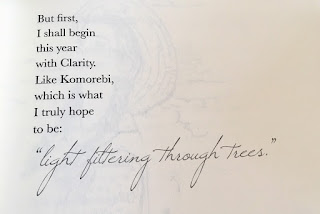 But first,
I shall begin
this year
with Clarity.
Like Komorebi,
which is what
I truly hope
to be:
“light filtering through trees.”